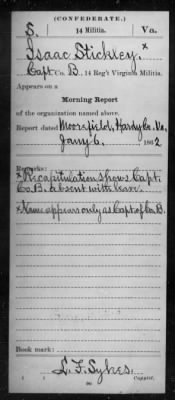 (CONFEDERATE.)
S. 14 Militia. Va.
Isaac Stickley. x
Capt, Co. B, 14 Reg't Virginia Militia.
Appears on a
Morning Report
of the organization named above.
Report dated Moorefield, Hardy Co. Va.,
Jany 6, 1862
Remarks:
x Recapitulation shows Capt.
Co. B. absent with leave.
x Name appears only as Capt of Co. B.
Book mark:
L. F. Sykes.
Copyist.